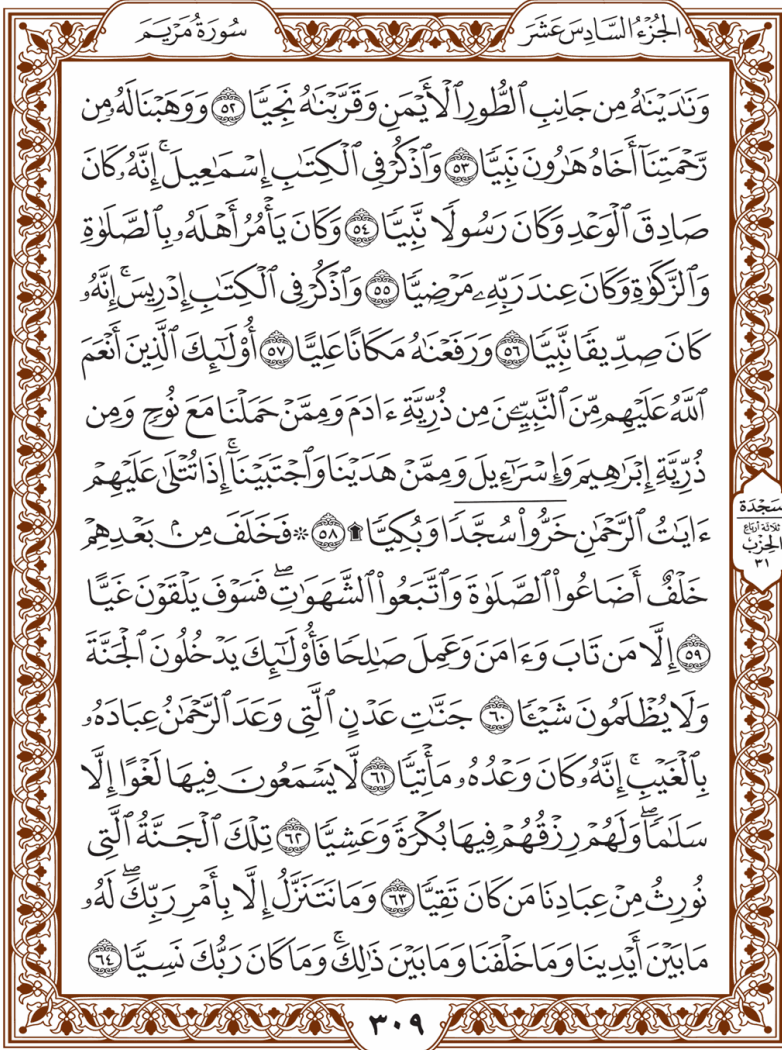 الجزء السادس عشر
سورة مريم
وَنَٰدَيْنَٰهُ مِن جَانِبِ ٱلطُّورِ ٱلْأَيْمَنِ وَقَرَّبْنَٰهُ نَجِيًّا ٥٢ وَوَهَبْنَا لَهُۥ مِن
رَّحْمَتِنَآ أَخَاهُ هَٰرُونَ نَبِيًّا ٥٣ وَٱذْكُرْ فِى ٱلْكِتَٰبِ إِسْمَٰعِيلَ ۚ إِنَّهُۥ كَانَ
صَادِقَ ٱلْوَعْدِ وَكَانَ رَسُولًا نَّبِيًّا ٥٤ وَكَانَ يَأْمُرُ أَهْلَهُۥ بِٱلصَّلَوٰةِ
وَٱلزَّكَوٰةِ وَكَانَ عِندَ رَبِّهِۦ مَرْضِيًّا ٥٥ وَٱذْكُرْ فِى ٱلْكِتَٰبِ إِدْرِيسَ ۚ إِنَّهُۥ
كَانَ صِدِّيقًا نَّبِيًّا ٥٦ وَرَفَعْنَٰهُ مَكَانًا عَلِيًّا ٥٧ أُو۟لَٰٓئِكَ ٱلَّذِينَ أَنْعَمَ
ٱللَّهُ عَلَيْهِم مِّنَ ٱلنَّبِيِّـۧنَ مِن ذُرِّيَّةِ ءَادَمَ وَمِمَّنْ حَمَلْنَا مَعَ نُوحٍ وَمِن
ذُرِّيَّةِ إِبْرَٰهِيمَ وَإِسْرَٰٓءِيلَ وَمِمَّنْ هَدَيْنَا وَٱجْتَبَيْنَآ ۚ إِذَا تُتْلَىٰ عَلَيْهِمْ
ءَايَٰتُ ٱلرَّحْمَٰنِ خَرُّوا۟ سُجَّدًا وَبُكِيًّا ۩ ٥٨ ۞ فَخَلَفَ مِنۢ بَعْدِهِمْ
خَلْفٌ أَضَاعُوا۟ ٱلصَّلَوٰةَ وَٱتَّبَعُوا۟ ٱلشَّهَوَٰتِ ۖ فَسَوْفَ يَلْقَوْنَ غَيًّا
٥٩ إِلَّا مَن تَابَ وَءَامَنَ وَعَمِلَ صَٰلِحًا فَأُو۟لَٰٓئِكَ يَدْخُلُونَ ٱلْجَنَّةَ
وَلَا يُظْلَمُونَ شَيْـًٔا ٦٠ جَنَّٰتِ عَدْنٍ ٱلَّتِى وَعَدَ ٱلرَّحْمَٰنُ عِبَادَهُۥ
بِٱلْغَيْبِ ۚ إِنَّهُۥ كَانَ وَعْدُهُۥ مَأْتِيًّا ٦١ لَّا يَسْمَعُونَ فِيهَا لَغْوًا إِلَّا
سَلَٰمًا ۖ وَلَهُمْ رِزْقُهُمْ فِيهَا بُكْرَةً وَعَشِيًّا ٦٢ تِلْكَ ٱلْجَنَّةُ ٱلَّتِى
نُورِثُ مِنْ عِبَادِنَا مَن كَانَ تَقِيًّا ٦٣ وَمَا نَتَنَزَّلُ إِلَّا بِأَمْرِ رَبِّكَ ۖ لَهُۥ
مَا بَيْنَ أَيْدِينَا وَمَا خَلْفَنَا وَمَا بَيْنَ ذَٰلِكَ ۚ وَمَا كَانَ رَبُّكَ نَسِيًّا ٦٤
سَجْدَة
ثلاثة أرباع
الحزب
٣١
٣٠٩